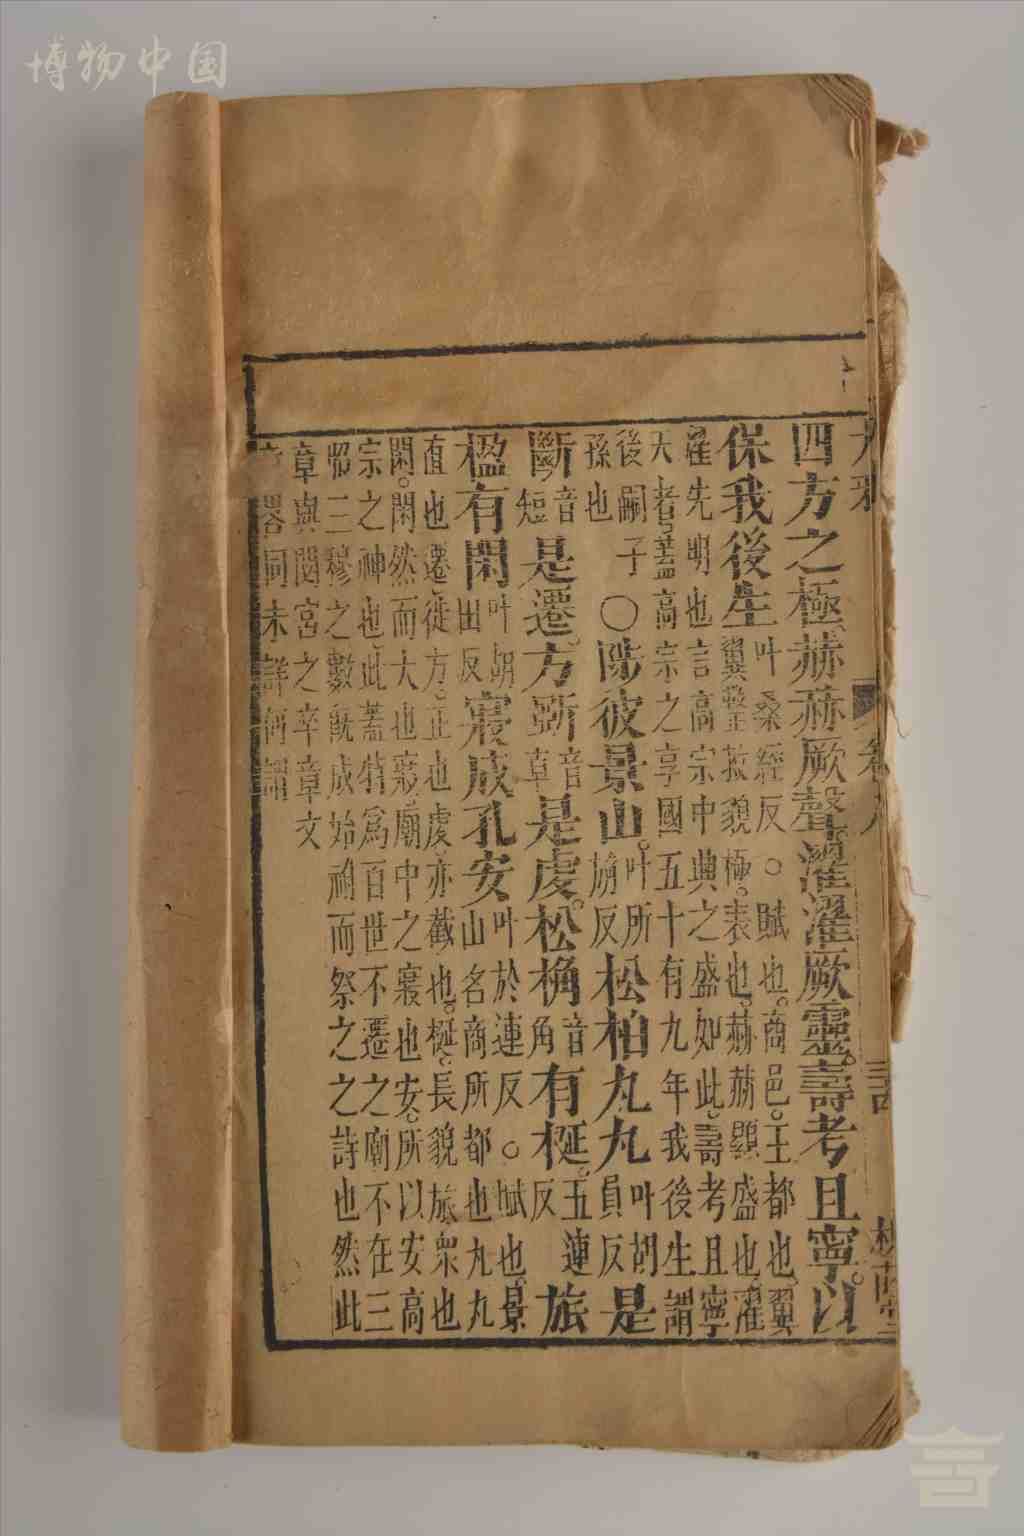 博物中国
四方之極赫赫厥聲濯濯厥靈壽考且寧以
保我後生叶桑經反○賦也商邑王都也翼
翼整敕貌極表也赫赫顯盛也濯
濯先明也言高宗中興之盛如此壽考且寧
天者蓋高宗之享國五十有九年我後生謂
後嗣子孫也○陟彼景山叶所旃反松柏丸丸叶胡員反是
斷音短是遷方斲音草是虔松桷音角有梴五連反旅
楹有閑叶胡田反寢成孔安叶於連反○賦也景
山名商所都也丸丸
直也遷徙方正也虔亦截也梴長貌旅衆也
閑閑然而大也寢廟中之寢也安所以安高
宗之神也此蓋特爲百世不遷之廟不在三
昭三穆之數既成始祔而祭之之詩也然此
章與閟宮之卒章文
章畧同未詳何謂